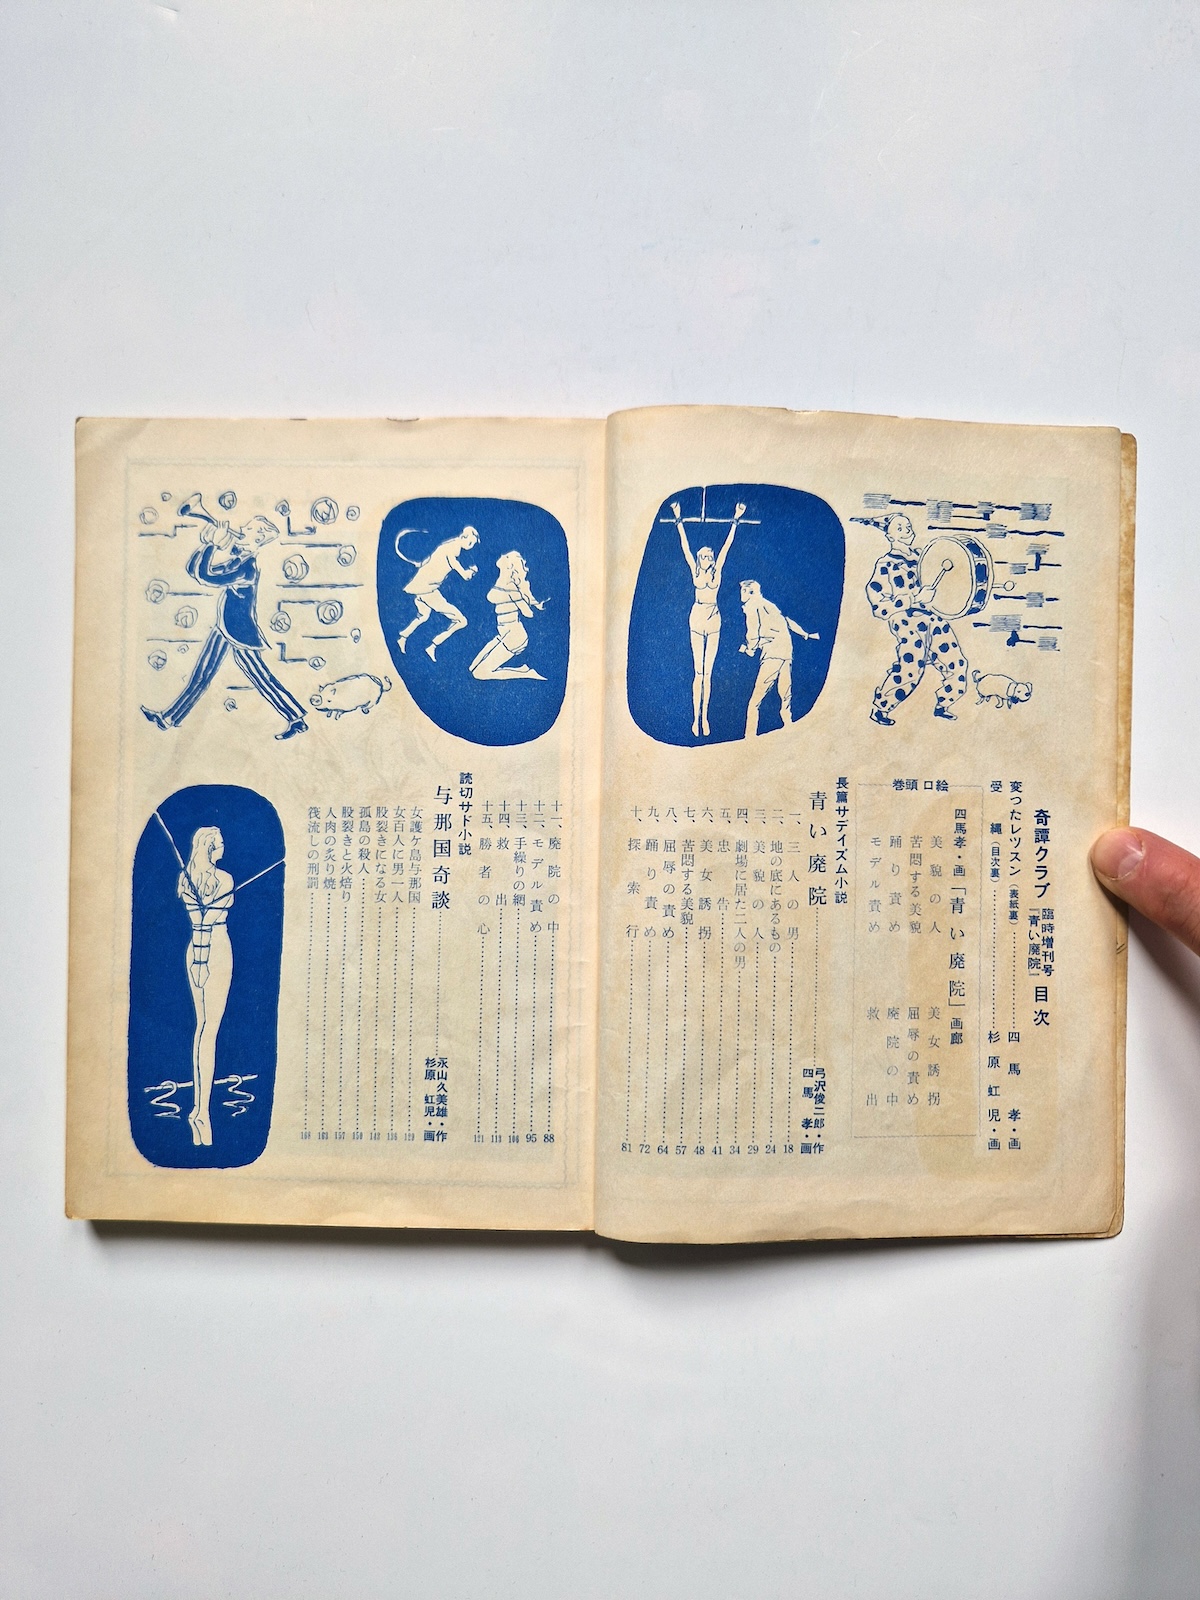 奇譚クラブ 臨時増刊号『青い廃院』目次
変つたレツスン(表紙裏)……四馬孝・画
受縄(目次裏)……杉原虹児・画
巻頭口絵
四馬孝・画「青い廃院」画廊
美貌の人 美女誘拐
苦悶する美貌 屈辱の責め
踊り責め 廃院の中
モデル責め 救出
長篇サデイズム小説
青い廃院……弓沢俊二郎・作
四馬孝・画
一、三人の男……18
二、地の底にあるもの……24
三、美貌の人……29
四、劇場に居た二人の男……34
五、忠告……41
六、美女誘拐……48
七、苦悶する美貌……57
八、屈辱の責め……64
九、踊り責め……72
十、探索行……81
十一、廃院の中……88
十二、モデル責め……95
十三、手繰りの網……106
十四、救出……113
十五、勝者の心……121
読切サド小説
与那国奇談……永山久美雄・作
杉原虹児・画
女護ケ島与那国……129
女百人に男一人……136
股裂きになる女……142
孤島の殺人……150
股裂きと火焙り……157
人肉の炙り焼……163
筏流しの刑罰……168